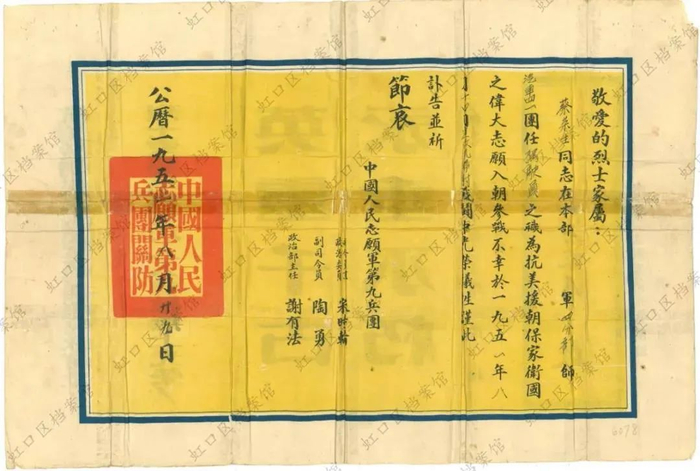 敬愛的烈士家屬：
同志在本部 軍 師
團任 之職為抗美援朝保家衛國
之偉大志願入朝參戰不幸於一九五一年八
月十四日 光榮犧牲謹此
訃告並祈
節哀
中國人民志願軍第九兵團
宋時輪
副司令員 陶勇
政治部主任 謝有法
公曆一九五 年八月廿九日
中國人民
志願軍第九
兵團關防
虹口区档案馆
6078